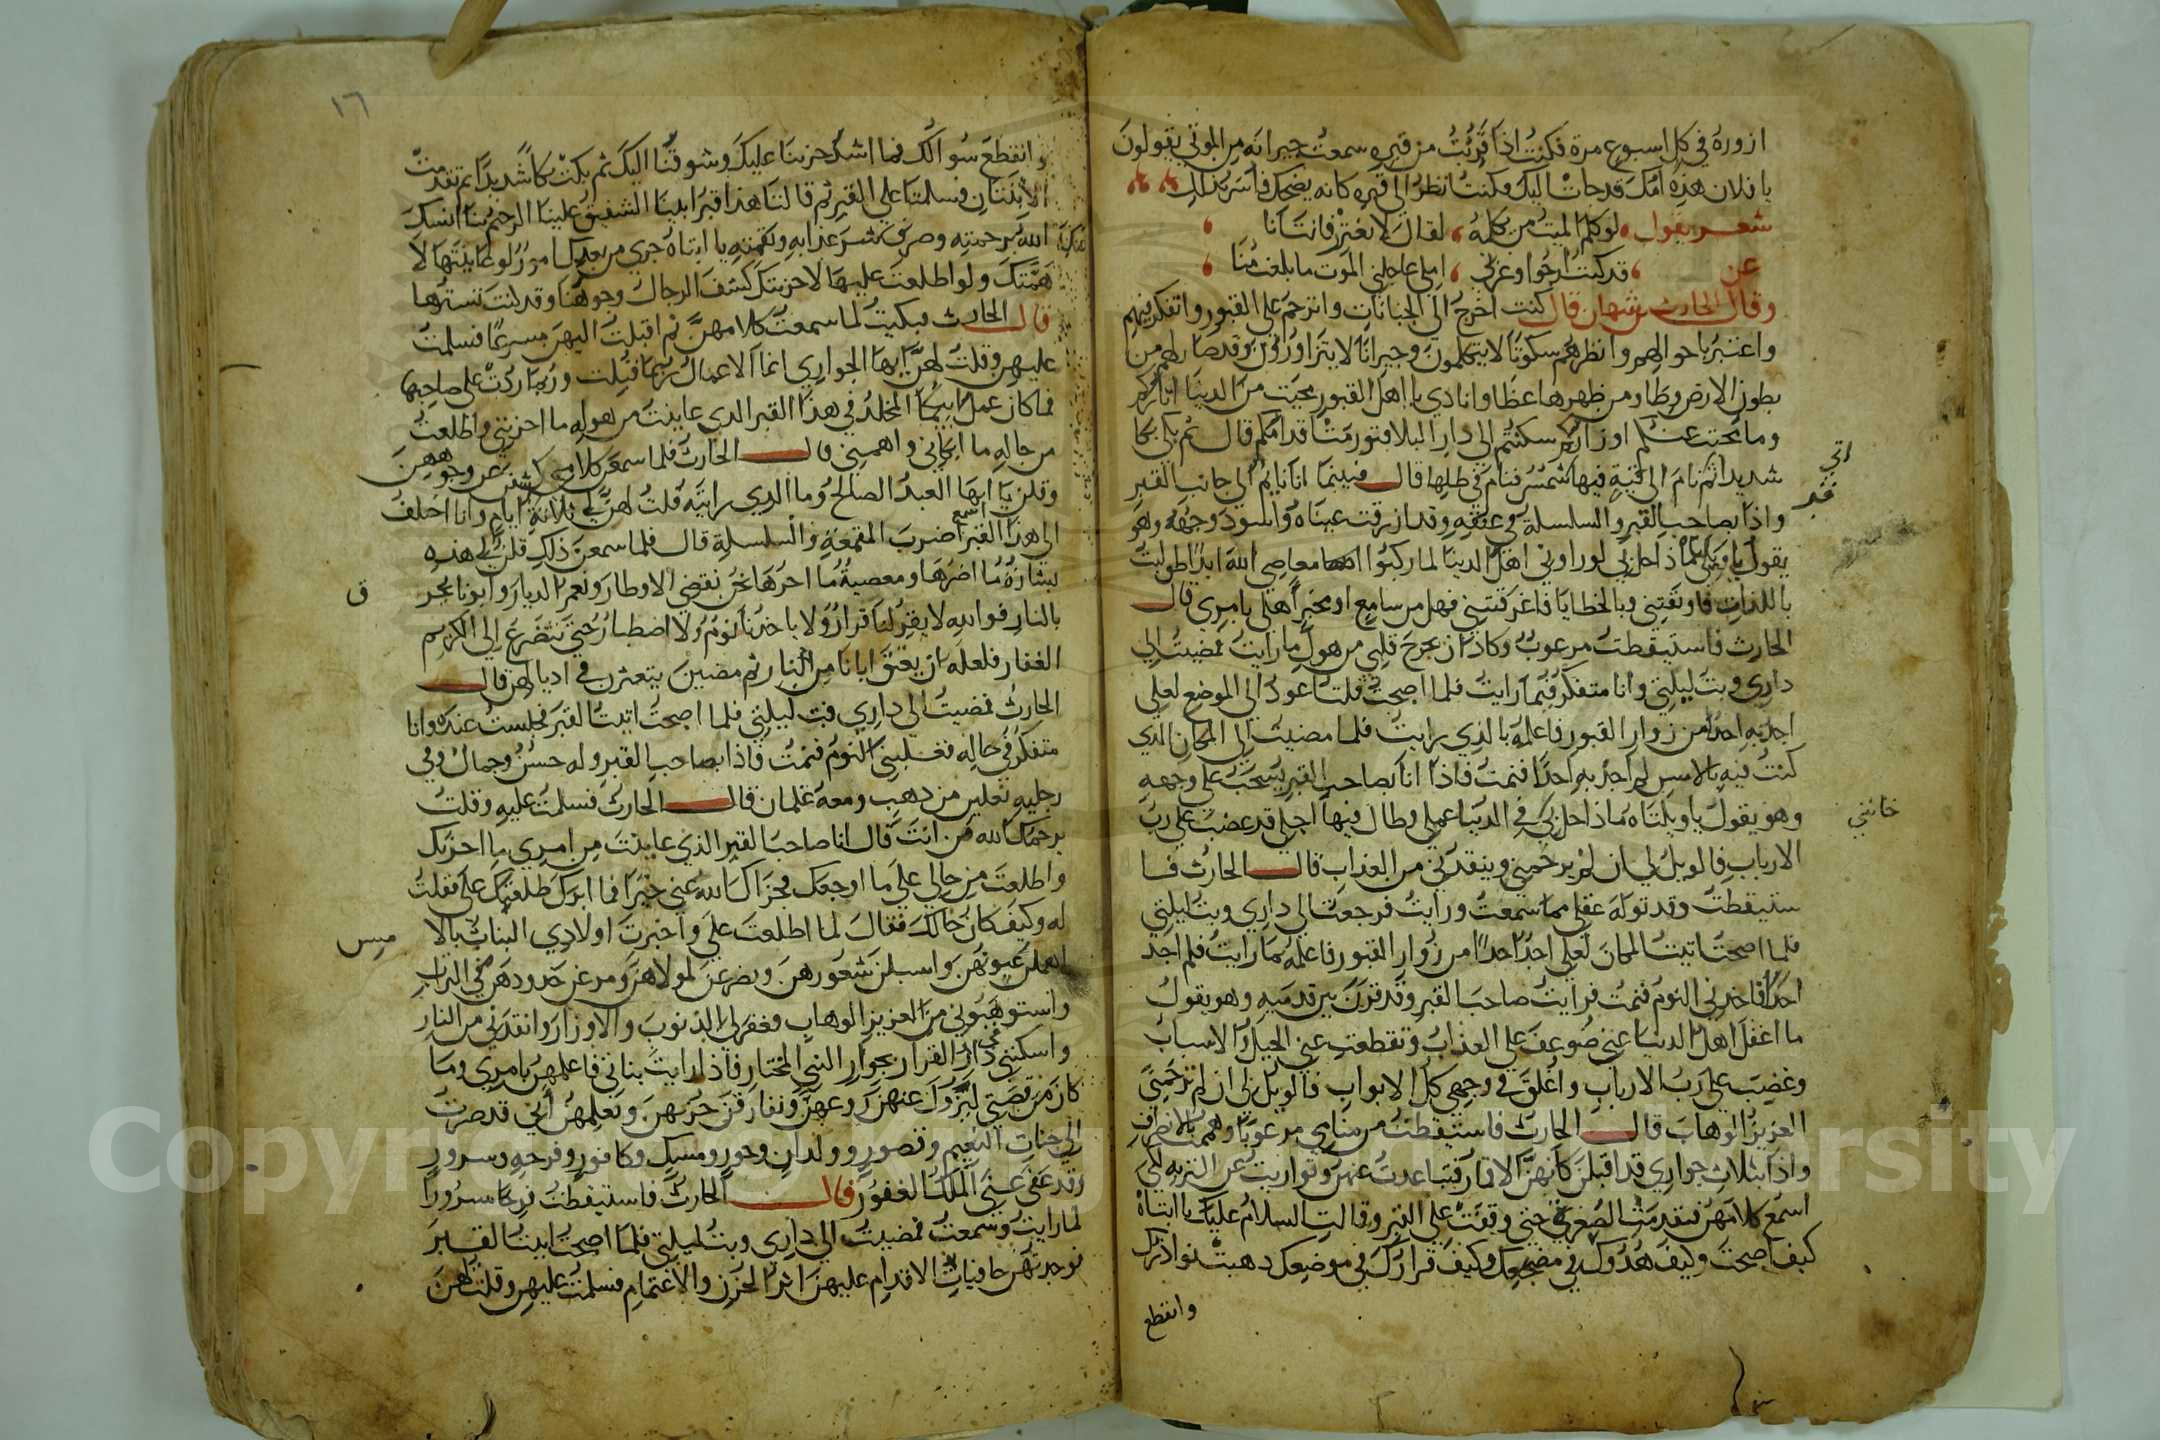 ازوره في كل اسبوع مرة فكنت اذا قربت من قبره سمعت جيرانه من الموتى يقولون
يا فلان هذه امك قد جات اليك فكنت انظر الى قبره كانه يضحك فاسر بذلك
شعر يقول لو كلم الميت من كلمه لقال لا تغتر فانت انا
عن قد كنت ارجوا وغرني املي عاجلني الموت ما بلغت منا
وقال الحارث بن نبهان قال كنت اخرج الى الجبانات واترحم على القبور واتفكر فيهم
واعتبر باحوالهم وانظرهم سكوتا لا يتكلمون وجيرانا لا يتزاورون وقد صار لهم من
بطون الارض وطا ومن ظهرها غطا وانادي يا اهل القبور محيت من الدنيا اثاركم
وما محيت عنكم اوزاركم سكنتم الى دار البلا فتورمت اقدامكم قال ثم بكى بكا
شديدا ثم نام الى قبة فيها شمس فنام في ظلها قال فبينما انا نايم الى جانب القبر
اتي
قبر
واذا بصاحب القبر والسلسلة في عنقه وقد ازرقت عيناه واسود وجهه وهو
يقول يا ويلي ماذا حل بي لو راوني اهل الدنيا لما ركبوا معاصي الله ابدا طولبت
باللذات فاوثقتني وبالخطايا فاغرقتني فهل من سامع او مخبر اهلي بامري قال
الحارث فاستيقظت مرعوب وكاد ان يجرح قلبي من هول ما رايت فمضيت الى
داري وبت ليلتي وانا متفكر فيما رايت فلما اصبحت قلت اعود الى الموضع لعلي
اجد به احدا من زوار القبور فاعلمه بالذي رايت فلما مضيت الى المكان الذي
كنت فيه بالامس لم اجد به احدا فنمت فاذا انا بصاحب القبر يسحب على وجهه
وهو يقول يا ويلتاه ماذا حل بي في الدنيا عملي وطال فيها اجلي قد غضب علي رب
خانني
الارباب فالويل لي ان لم يرحمني وينقذني من العذاب قال الحارث فا
ستيقظت وقد توله عقلي مما سمعت ورايت فرجعت الى داري وبت ليلتي
فلما اصبحت اتيت المكان لعلي اجد احدا من زوار القبور فاعلمه بما رايت فلم اجد
احدا فاخذني النوم فنمت فرايت صاحب القبر وقد قرن بين قدميه وهو يقول
ما اغفل اهل الدنيا عني ضوعف علي العذاب وتقطعت عني الحيل والاسباب
وغضب علي رب الارباب واغلق في وجهي كل الابواب فالويل لي ان لم ترحمني
العزيز الوهاب قال الحارث فاستيقظت من منامي مرعوبا وهممت بالانصراف
واذا بثلاث جواري قد اقبلن كانهن الاقمار فتباعدت عنهن وتواريت عن التربه لكي
اسمع كلامهن فتقدمت الصغرى حتى وقفت على القبر وقالت السلام عليك يا ابتاه
كيف اصبحت وكيف هدوك في مضجعك وكيف قرارك في موضعك ذهبت نوادرك
وانقطع
١٦
وانقطع سوالك فما اشد حزننا عليك وشوقنا اليك ثم بكت بكاء شديدا ثم تقدمت
الابنتان فسلمتا على القبر ثم قالتا هذا قبر ابينا الشفيق علينا الرحيم بنا انسك
الله برحمته وصرف عنك شر عذابه ونقمته يا ابتاه جرى من بعدك امور لو عاينتها لا
همتك ولو اطلعت عليها لاحزنتك كشف الرجال وجوهنا وقد كنت تسترها
قال الحارث فبكيت لما سمعت كلامهن ثم اقبلت اليهن مسرعا فسلمت
عليهن وقلت لهن ايها الجواري انما الاعمال ربما قبلت وربما ردت على صاحبها
فما كان عمل ابيكما المخلد في هذا القبر الذي عاينت من هوله ما احزنني واطلعت
من حاله ما ابكاني واهمني قال الحارث فلما سمعن كلامي كشفن عن وجوههن
وقلن يا ايها العبد الصالح وما الذي رايته قلت لهن لي ثلاثة ايام وانا اختلف
الى هذا القبر اسمع ضرب المقمعة والسلسلة قال فلما سمعن ذلك قلن لي هذه
بشارة ما اضرها ومعصية ما احرها نحن نقضي الاوطار ونعمر الديار وابونا يحر
ق
بالنار فوالله لا يقر لنا قرار ولا ياخذنا نوم ولا اصطبار حتى نتضرع الى الكريم
الغفار فلعله ان يعتق ابانا من النار ثم مضين يتعثرن في اذيالهن قال
الحارث فمضيت الى داري فبت ليلتي فلما اصبحت اتيت القبر فجلست عنده وانا
متفكر في حاله فغلبني النوم فنمت فاذا بصاحب القبر وله حسن وجمال وفي
رجليه نعلين من ذهب ومعه غلمان قال الحارث فسلمت عليه وقلت
يرحمك الله من انت قال انا صاحب القبر الذي عاينت من امري ما احزنك
واطلعت من حالي على ما اوجعك فجزاك الله عني خيرا فما ابرك طلعتك علي فقلت
له وكيف كان حالك فقال لما اطلعت علي واخبرت اولادي البنات بالا
مس
اهملن عيونهن واسبلن شعورهن وتضرعن لمولاهن ومرغن خدودهن في التراب
واستوهبوني من العزيز الوهاب وغفر لي الذنوب والاوزار وانقذني من النار
واسكنني دار القرار بجوار النبي المختار فاذا رايت بناتي فاعلمهن بامري وما
كان من قصتي ليزول عنهن روعهن ونفارقن حزنهن وتعلمهن اني قد صرت
الى جنات النعيم وقصور وولدان وحور ومسك وكافور وفرحه وسرور
وقد عفى عني الملك الغفور قال الحارث فاستيقظت فرحا مسرورا
لما رايت وسمعت فمضيت الى داري وبت ليلتي فلما اصبحت اتيت القبر
فوجدتهن حافيات الاقدام عليهن اثر الحزن والاغتمام فسلمت عليهن وقلت لهن